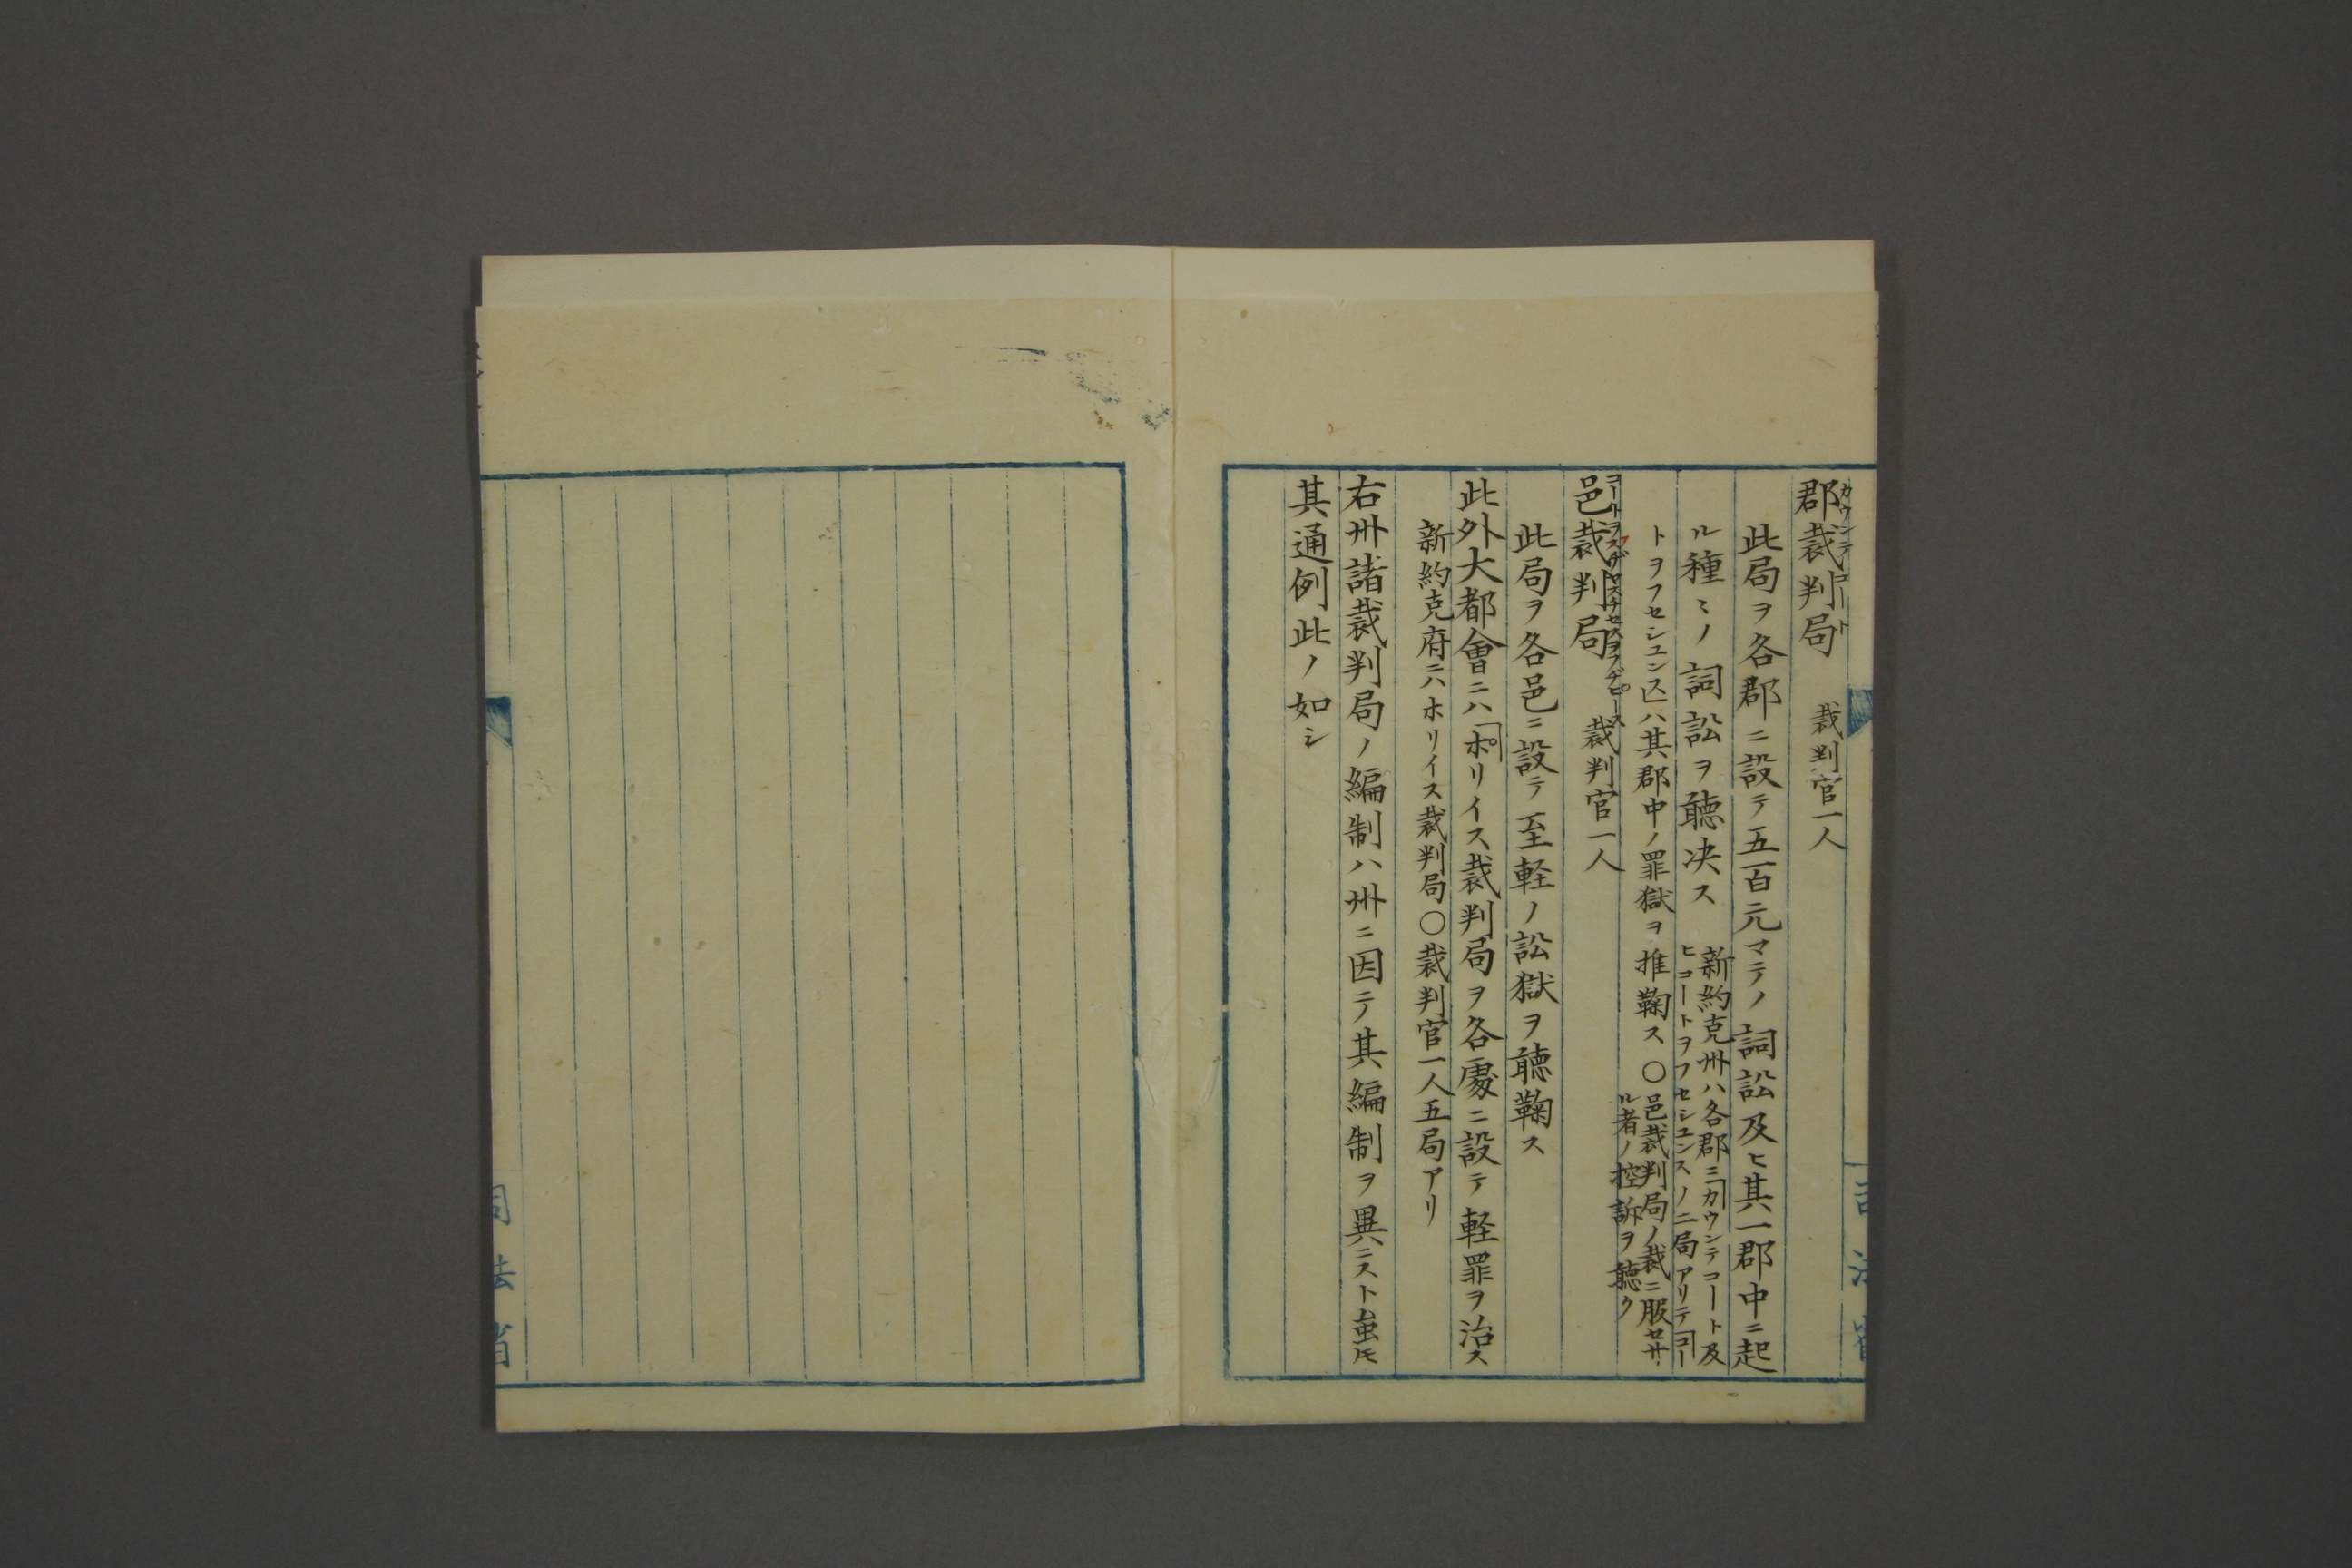 郡裁判局　裁判官一人
カウンティコート
此局ヲ各郡ニ設テ五百元マテノ詞訟及ヒ其一郡中ニ起
ル種々ノ詞訟ヲ聴决ス
新約克州ハ各郡ニ「カウンテコート及
ヒコートヲフセシユンスノ二局アリテ「コー
トヲフセシユンス」ハ其郡中ノ罪獄ヲ推鞠ス○
邑裁判局ノ裁ニ服セサ
ル者ノ控訴ヲ聴ク
邑裁判局　裁判官一人
此局ヲ各邑ニ設テ至軽ノ訟獄ヲ聴鞠ス
此外大都會ニハ「ポリイス裁判局ヲ各處ニ設テ軽罪ヲ治ス
新約克府ニハホリイス裁判局○裁判官一人五局アリ
右州諸裁判局ノ編制ハ州ニ因テ其編制ヲ異ニスト虽𪜈
其通例此ノ如シ
司法省
司法省